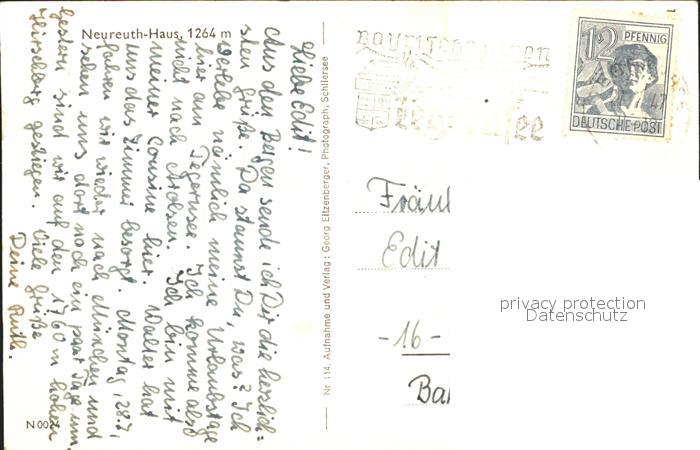 Neureuth-Haus, 1264 m
Liebe Edit!
Aus den Bergen sende ich Dir die herzlich-
sten Grüße. Da staunst Du, was? Ich
verlebe nämlich meine Urlaubstage
hier am Tegernsee. Ich komme also
nicht nach Arolsen. Ich bin mit
meiner Cousine hier. Walter hat
uns das Zimmer besorgt. Montag, 28.7,
fahren wir wieder nach München und
sehen uns dort noch ein paar Tage um.
Gestern sind wir auf den 1760 m hohen
Hirschberg gestiegen. Viele Grüße
Deine Ruth.
N 0024
Nr. 114. Aufnahme und Verlag: Georg Eitzenberger, Photograph, Schliersee
Tegernsee
12 PFENNIG
DEUTSCHE POST
Fräul
Edit
-16-
Ba
privacy protection
Datenschutz